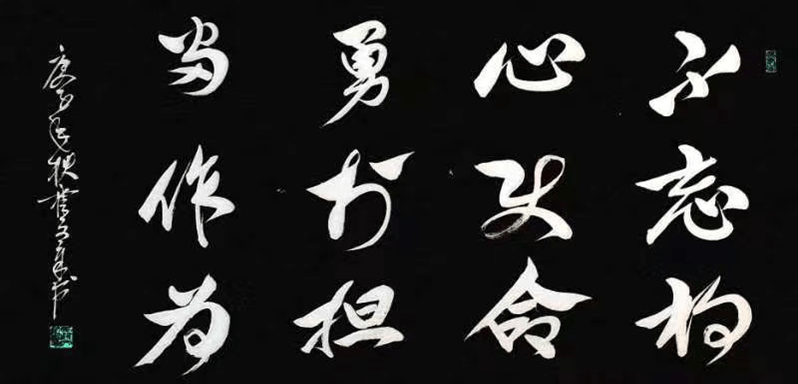 不忘初
心使命
勇於担
当作为
庚子年秋